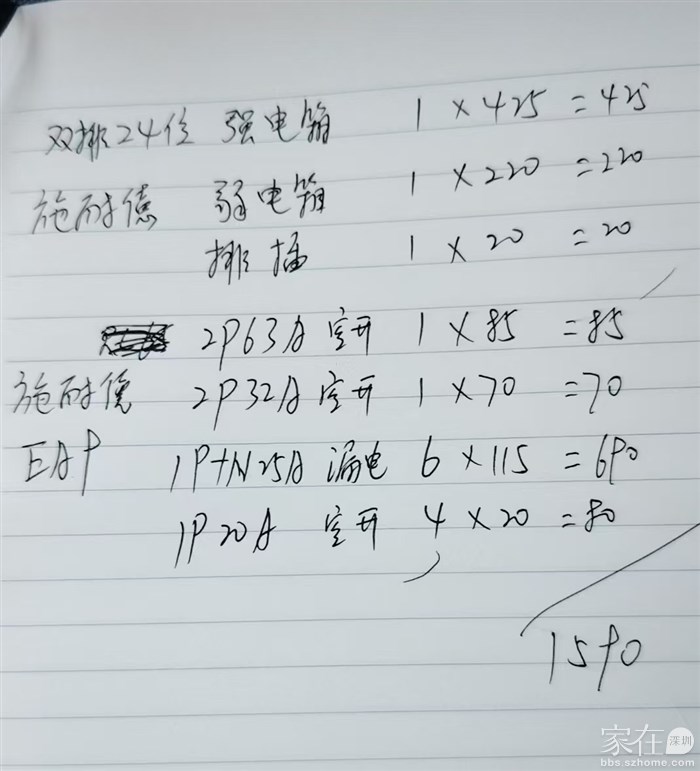 双排24位 强电箱 1 × 425 = 425
施耐德 弱电箱 1 × 220 = 220
排插 1 × 20 = 20
2P63A 空开 1 × 85 = 85
施耐德 2P32A 空开 1 × 70 = 70
EAP 1P+N25A 漏电 6 × 115 = 690
1P20A 空开 4 × 20 = 80
1590
家在深圳
bbs.szhome.com